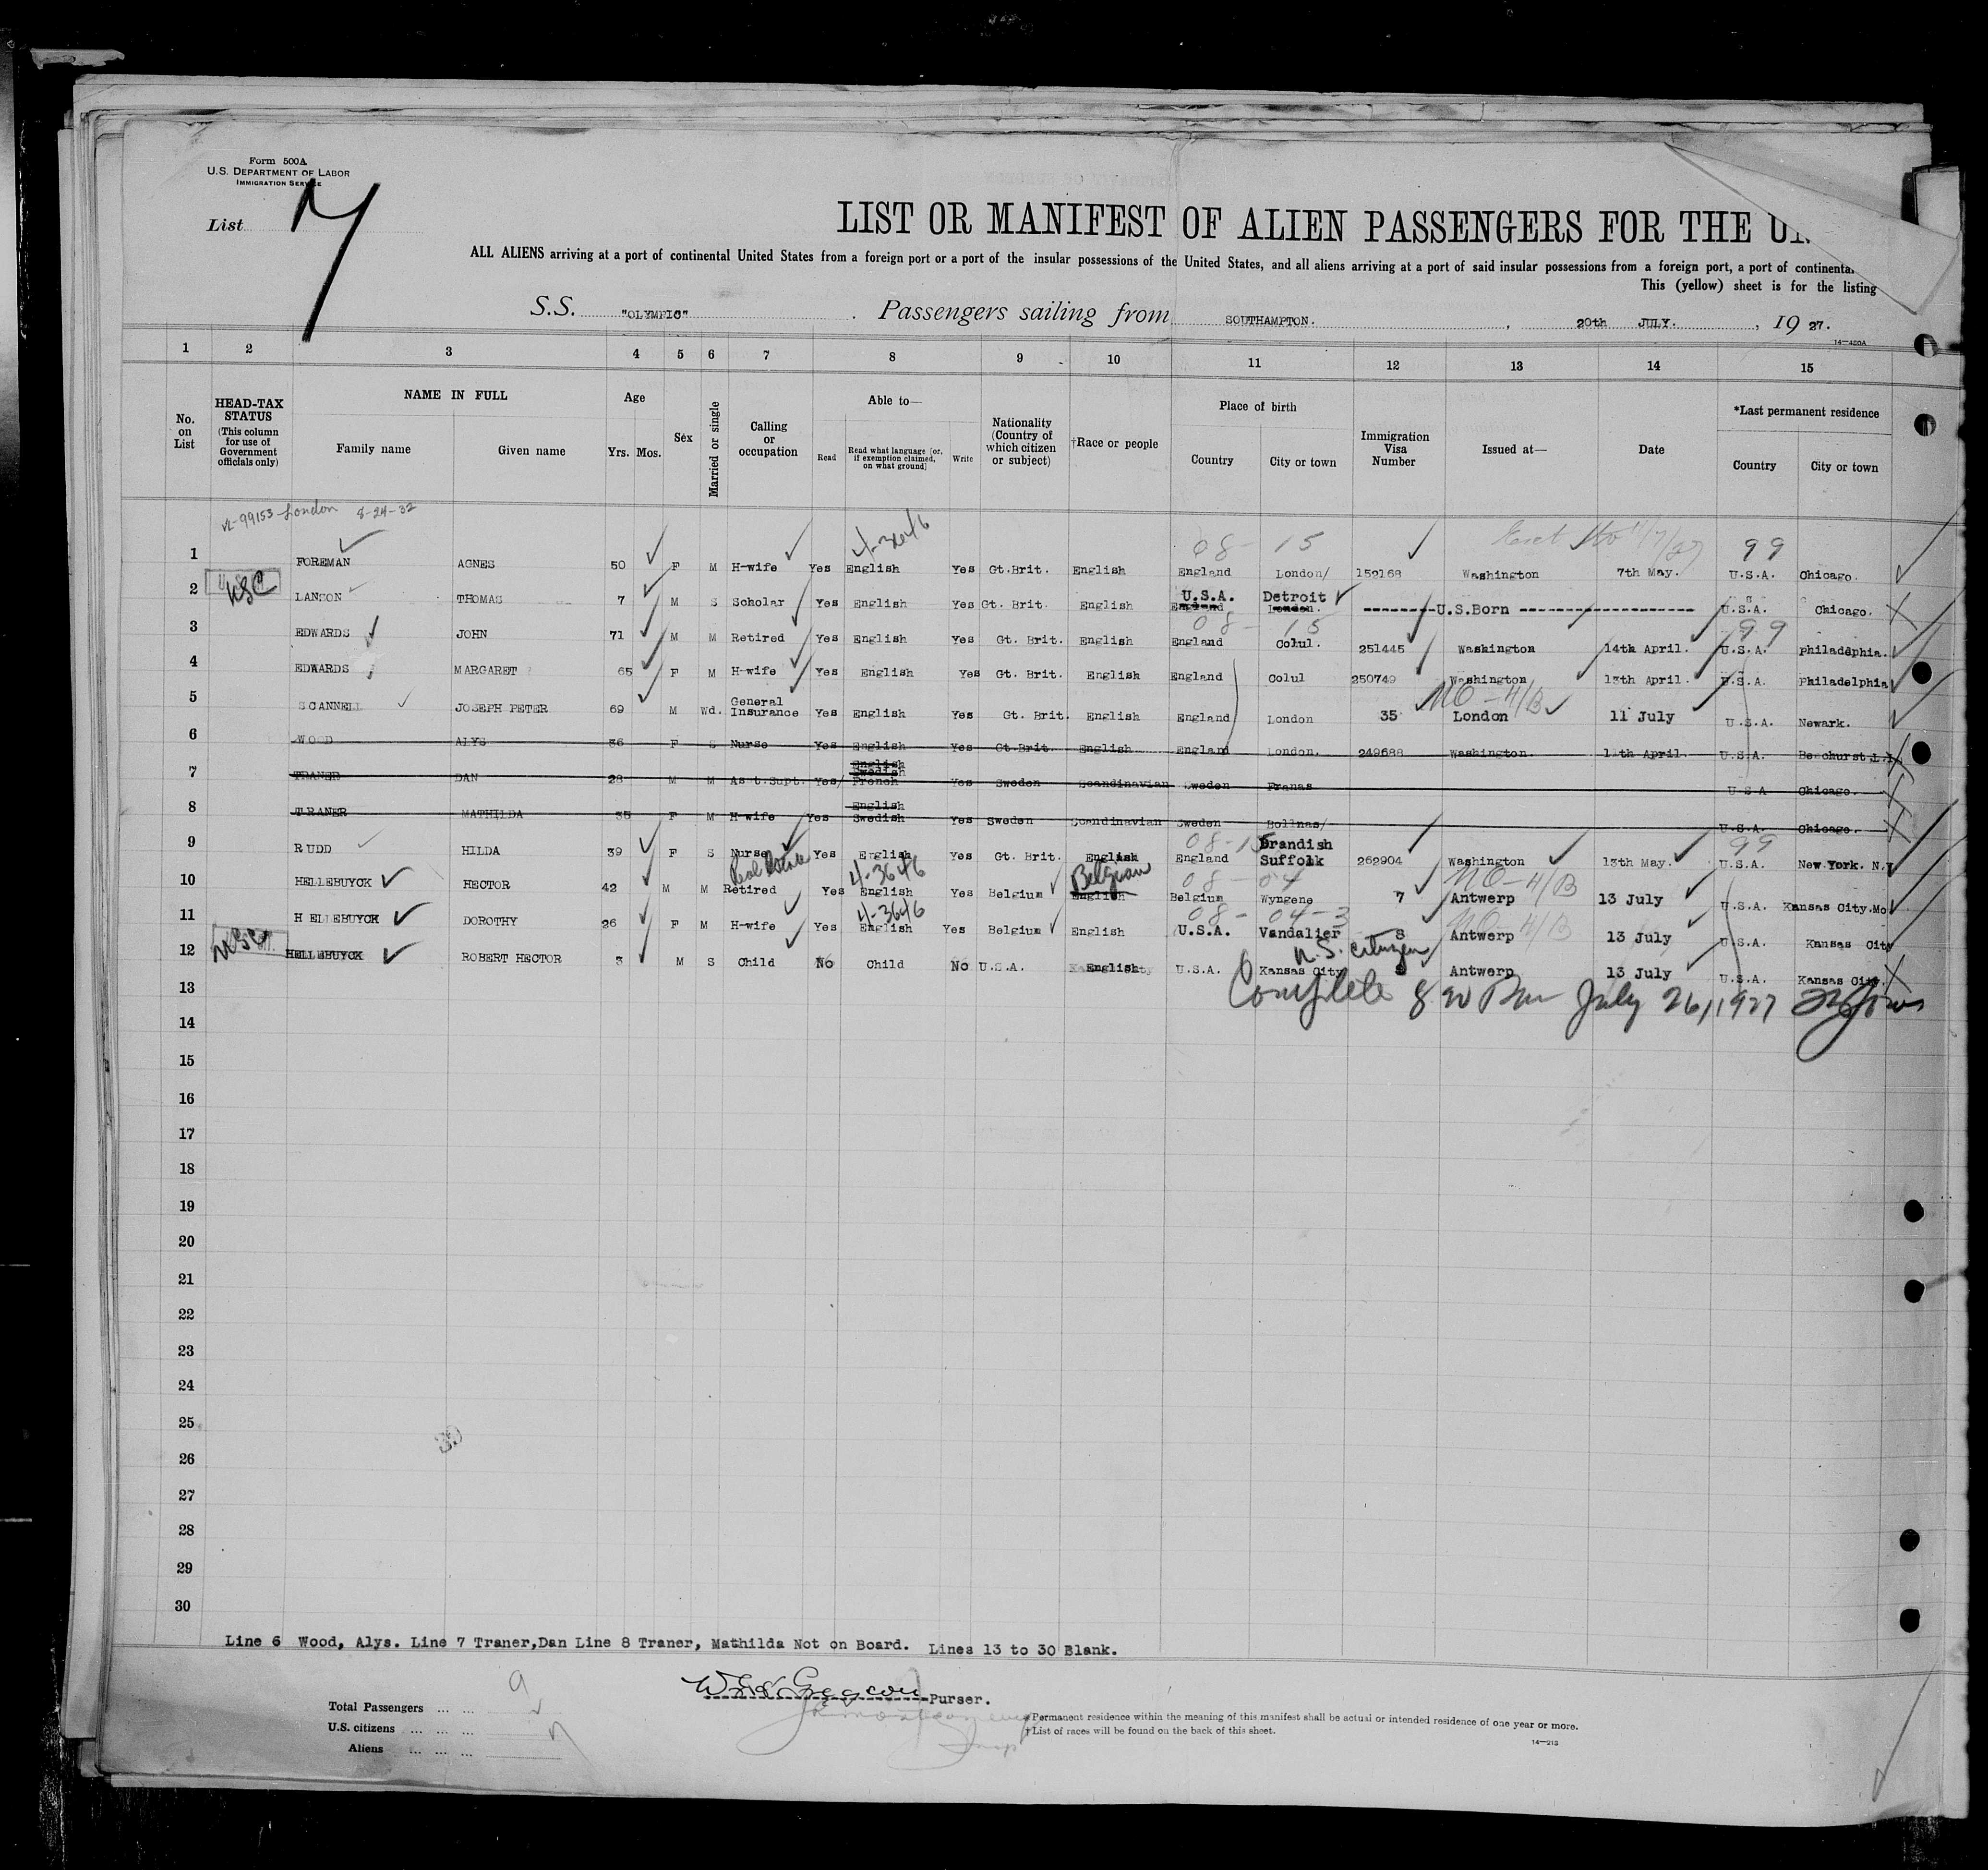 Form 500A
U.S. DEPARTMENT OF LABOR
IMMIGRATION SERVICE
List 7
LIST OR MANIFEST OF ALIEN PASSENGERS FOR THE
ALL ALIENS arriving at a port of continental United States from a foreign port or a port of the insular possessions of the United States, and all aliens arriving at a port of said insular possessions from a foreign port, a port of
This (yellow) sheet is for the listing
S.S. "OLYMPIC" . Passengers sailing from SOUTHAMPTON. , 20th JULY. , 19 27.
14-420A
1 2 3 4 5 6 7 8 9 10 11 12 13 14 15
No. on List
HEAD-TAX STATUS (This column for use of Government officials only)
NAME IN FULL
Family name Given name
Age
Yrs. Mos.
Sex
Married or single
Calling or occupation
Able to—
Read Read what language [or, if exemption claimed, on what ground] Write
Nationality (Country of which citizen or subject)
†Race or people
Place of birth
Country City or town
Immigration Visa Number
Issued at—
Date
*Last permanent residence
Country City or town
99153-London 8-24-32
4-3646 08- 15 99
1 FOREMAN AGNES 50 F M H-wife Yes English Yes Gt.Brit. English England London/ 152168 Washington 7th May. U.S.A. Chicago.
USC
U.S.A. Detroit
2 LANSON THOMAS 7 M S Scholar Yes English Yes Gt. Brit. English England London. --------U.S.Born -------------------- U.S.A. Chicago.
08- 15 99
3 EDWARDS JOHN 71 M M Retired Yes English Yes Gt. Brit. English England Colul. 251445 Washington 14th April. U.S.A. Philadephia.
4 EDWARDS MARGARET 65 F M H-wife Yes English Yes Gt. Brit. English England Colul 250749 Washington 13th April. U.S.A. Philadelphia
NO-4/B
5 SCANNELL JOSEPH PETER 69 M Wd. General Insurance Yes English Yes Gt. Brit. English England London 35 London 11 July U.S.A. Newark.
6 WOOD ALYS 36 F S Nurse Yes English Yes Gt.Brit. English England London. 249688 Washington 11th April. U.S.A Beechurst L.I.
English
Swedish
7 TRANER DAN 28 M M Asst.Supt. Yes/ French Yes Sweden Scandinavian Sweden Franas U S A Chicago.
English
8 TRANER MATHILDA 35 F M H-wife Yes Swedish Yes Sweden Scandinavian Sweden Bollnas/ U.S.A. Chicago.
08-15 Brandish 99
9 RUDD HILDA 39 F S Nurse Yes English Yes Gt. Brit. English England Suffolk 262904 Washington 13th May. U.S.A. New York. N.Y
Real Estate 4-3646 Belgian 08- 04 NO-4/B
10 HELLEBUYCK HECTOR 42 M M Retired Yes English Yes Belgium English Belgium Wyngene 7 Antwerp 13 July U.S.A. Kansas City.Mo
4-3646 08- 04-3 NO-4/B
11 HELLEBUYCK DOROTHY 26 F M H-wife Yes English Yes Belgium English U.S.A. Vandalier 8 Antwerp 13 July U.S.A. Kansas City
USC U.S. Citizen
12 HELLEBUYCK ROBERT HECTOR 3 M S Child No Child No U.S.A. English U.S.A. Kansas City Antwerp 13 July U.S.A. Kansas City.
13 Complete July 26, 1927
14
15
16
17
18
19
20
21
22
23
24
25
26
27
28
29
30
Line 6 Wood, Alys. Line 7 Traner,Dan Line 8 Traner, Mathilda Not on Board. Lines 13 to 30 Blank.
Purser.
Total Passengers ... ... 9
U.S. citizens ... ... ...
Aliens ... ... ...
*Permanent residence within the meaning of this manifest shall be actual or intended residence of one year or more.
†List of races will be found on the back of this sheet.
14-213